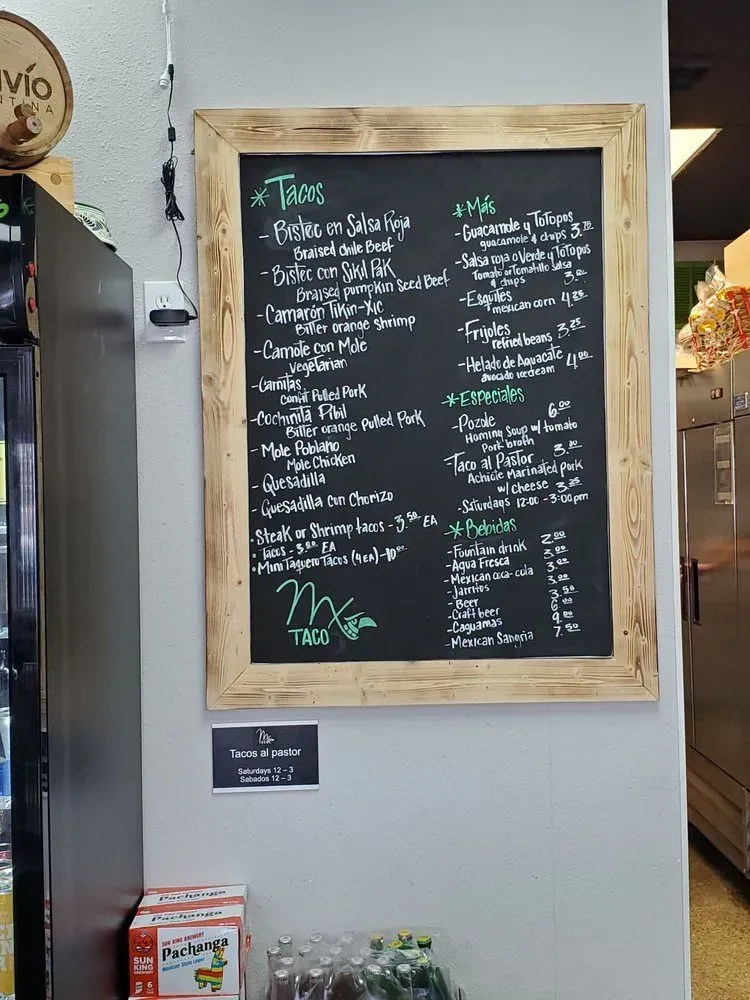 VÍO
NTINA
* Tacos
- Bistec en Salsa Roja
Braised chile Beef
- Bistec con Sikil Pak
Braised pumpkin Seed Beef
- Camarón Tikin-Xic
Bitter orange shrimp
- Camote con Mole
Vegetarian
- Carnitas
Confit Pulled Pork
- Cochinita Pibil
Bitter orange Pulled Pork
- Mole Poblano
Mole Chicken
- Quesadilla
- Quesadilla con Chorizo
• Steak or Shrimp tacos - 3.50 EA
• Tacos - 3.00 EA
• Mini Taquero Tacos (4 EA) - 10
Mx
TACO
* Más
- Guacamole y Totopos
guacamole & chips 3.75
- Salsa roja o Verde y Totopos
Tomato or Tomatillo Salsa
& chips 3.00
- Esquites
mexican corn 4.25
- Frijoles
refried beans 3.25
- Helado de Aquacate 4.00
avocado icecream
* Especiales
- Pozole 6.00
Hominy Soup w/ tomato
Pork broth
- Taco al Pastor 3.00
Achiote Marinated pork
w/ cheese 3.25
- Saturdays 12:00 - 3:00pm
* Bebidas
- Fountain drink 2.00
- Agua Fresca 3.00
- Mexican coca-cola 3.00
- Jarritos 3.00
- Beer 3.50
- Craft beer 6.00
- Caguamas 9.00
- Mexican Sangria 7.50
Mx
TACO
Tacos al pastor
Saturdays 12 – 3
Sabados 12 – 3
Pachanga
Pachanga
SUN KING BREWERY
Pachanga
Mexican Style Lager
SUN
KING
BREWERY
6